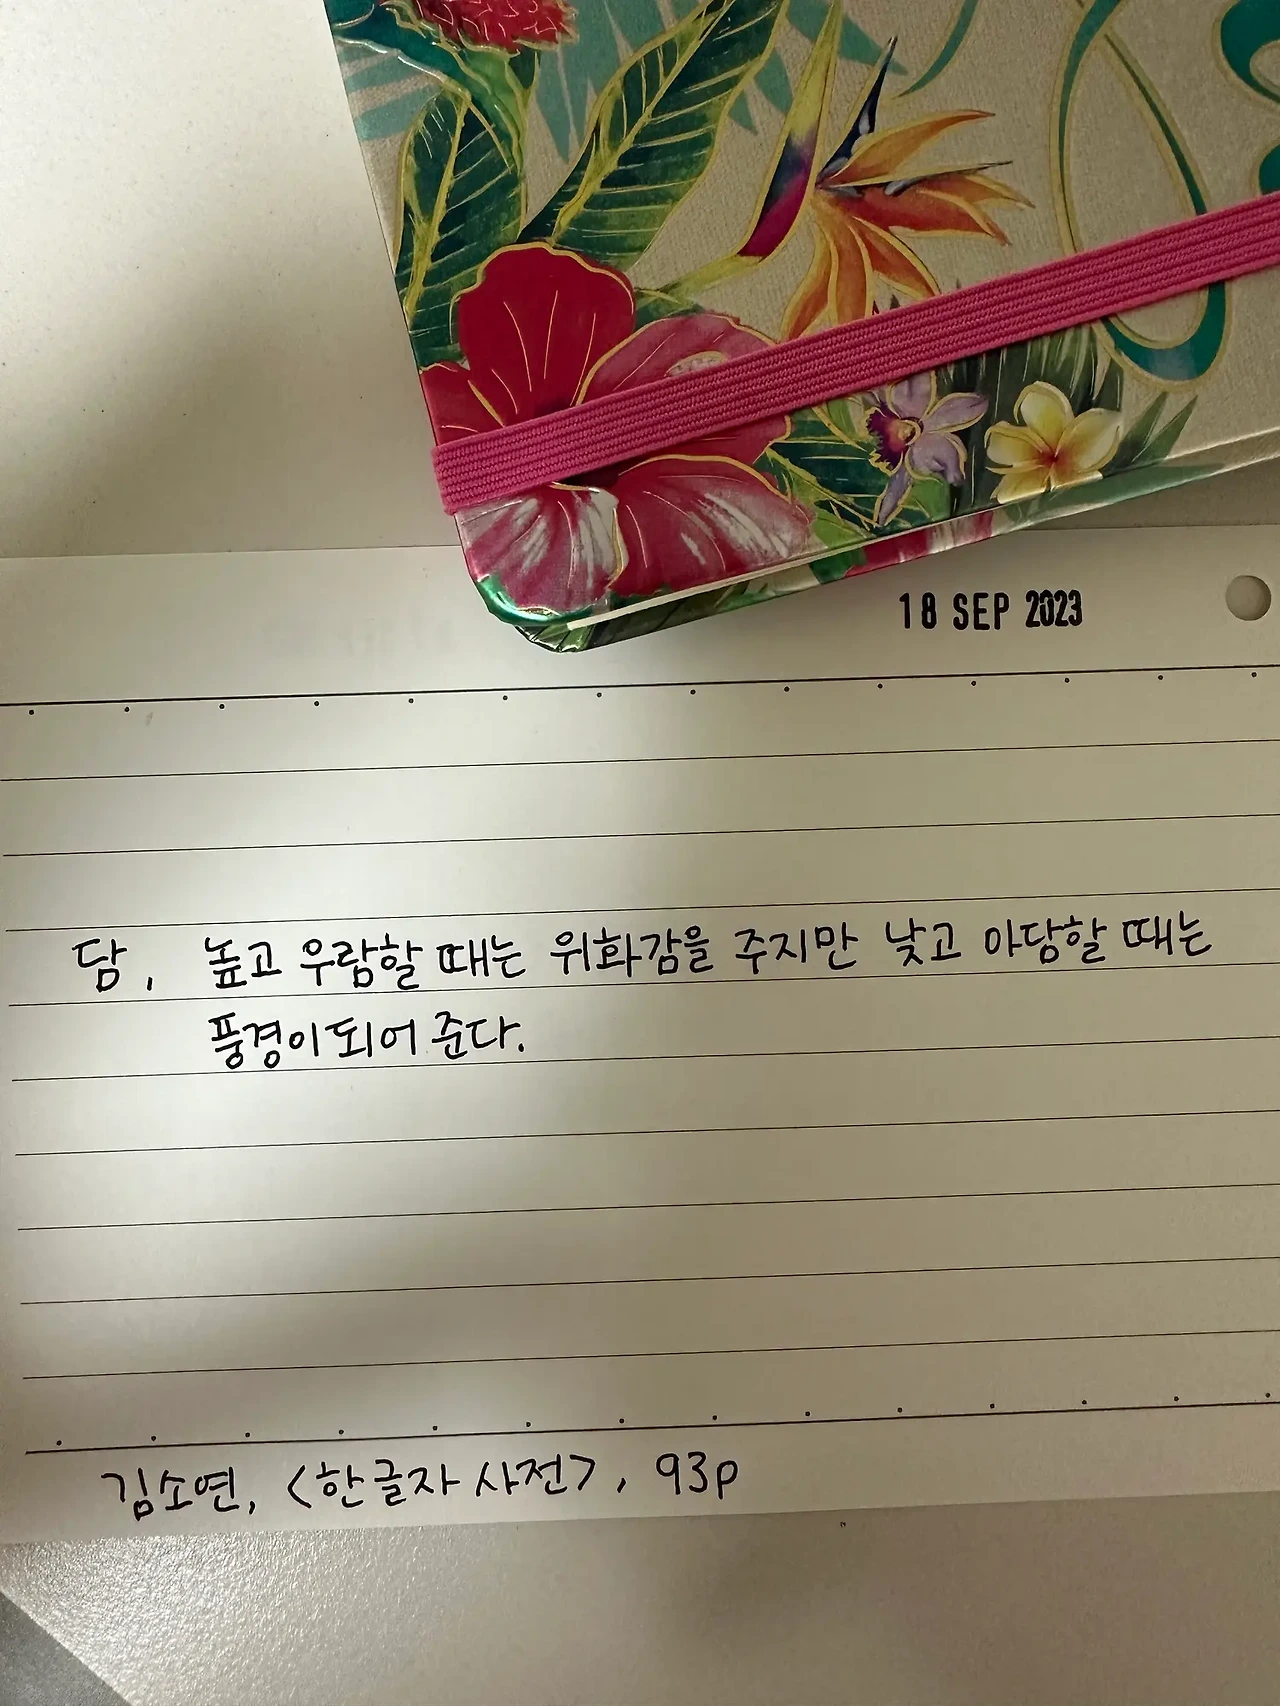 18 SEP 2023
담, 높고 우람할 때는 위화감을 주지만 낮고 아담할 때는
풍경이 되어 준다.
김소연, <한 글자 사전>, 93p